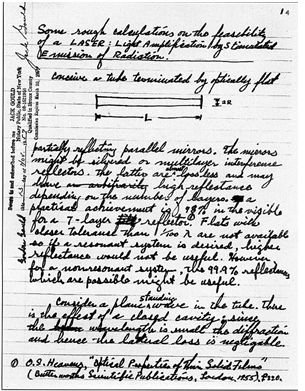 Some rough calculations on the feasibility
of a LASER: Light Amplification by Stimulated
Emission of Radiation.
conceive a tube terminated by optically flat
L
partially reflecting parallel mirrors. The mirrors
might be silvered or multilayer interference
reflectors. The latter are lossless and may
have high reflectance
depending on the number of layers. A
practical achievement is 98% in the visible
for a 7-layer reflector. Flats with
closer tolerance than 1/100 λ are not available
so if a resonant system is desired, higher
reflectance would not be useful. However
for a nonresonant system, the 99.9% reflectances
which are possible might be useful.
Consider a plane standing wave in the tube. There
is the effect of a closed cavity; since
the wavelength is small the diffraction
and hence the lateral loss is negligible.
O.S. Heavens, "Optical Properties of Thin Solid Films"
(Butterworths Scientific Publications, London, 1955), p220.
JACK GOULD
Notary Public, State of New York